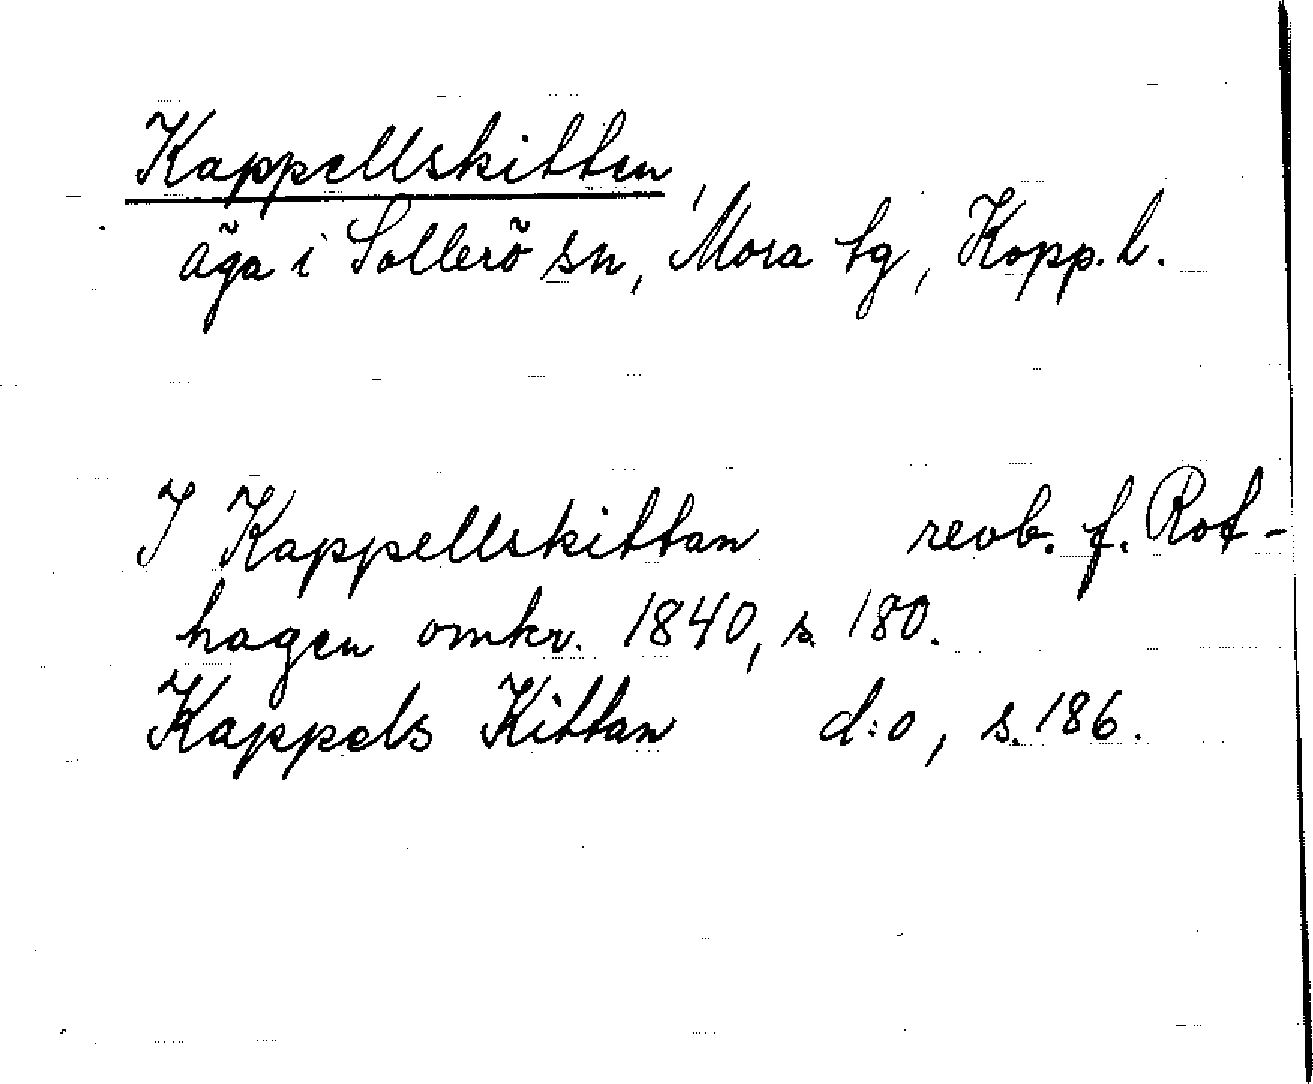 Kappellskitten,
äga i Sollerö sn, Mora tg, Kopp. l.
I Kappellskittan revb. f. Rot-
hagen omkr. 1840, s. 180.
Kappels Kittan d:o, s. 186.